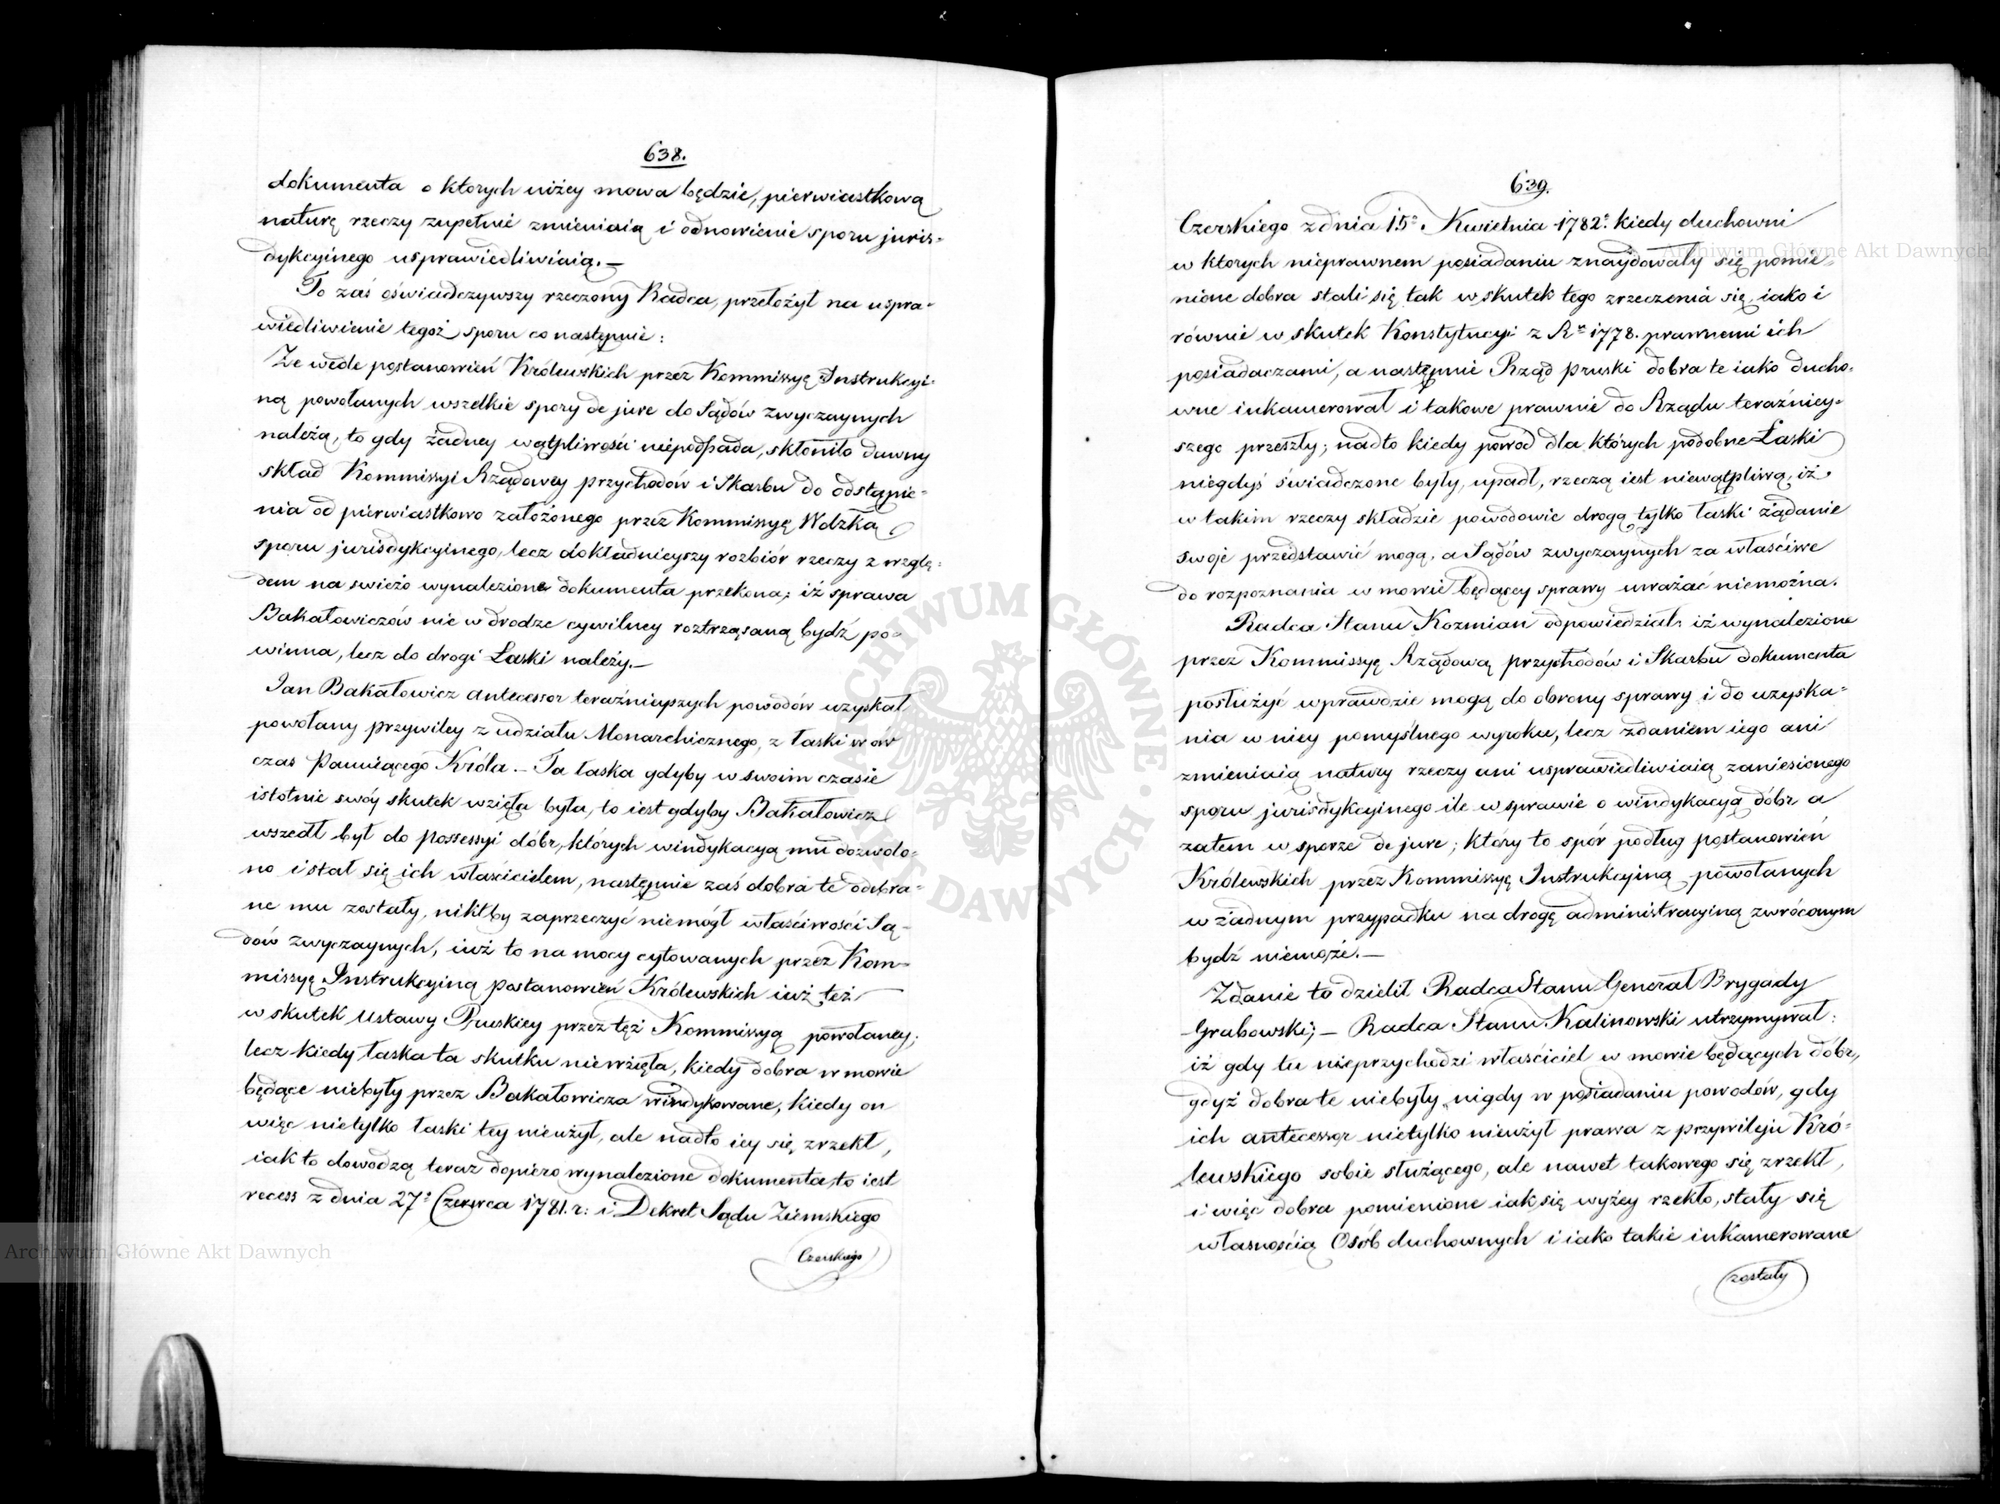 638.
dokumenta o ktorych niżey mowa będzie, pierwiastkową
naturę rzeczy zupełnie zmieniaią i odnowienie sporu juris-
dykcyinego usprawiedliwiaią. —
To zaś oświadczywszy rzeczony Radca, przełożył na uspra-
wiedliwienie tegoż sporu co następuie:
Ze wedle postanowień Królewskich przez Kommissyę Instrukcyi-
ną powołanych wszelkie spory de jure do Sądów zwyczaynych
należą, to gdy żadney wątpliwości niepodpada, skłoniło dawny
skład Kommissyi Rządowey przychodów i Skarbu do odstąpie-
nia od pierwiastkowo założonego przez Kommissyę Wdzką
sporu jurisdykcyinego, lecz dokładnieyszy rozbiór rzeczy z wzglę-
dem na swieżo wynalezione dokumenta przekona, iż sprawa
Bakałowiczów nie w drodze cywilney roztrząsaną bydź po-
winna, lecz do drogi Łaski należy. —
Jan Bakałowicz antecessor teraźnieyszych powodów uzyskał
powołany przywiley z udziału Monarchicznego, z łaski w ów
czas Panuiącego Króla. — Ta łaska gdyby w swoim czasie
istotnie swóy skutek wzięła była, to iest gdyby Bakałowicz
wszedł był do possessyi dóbr, których windykacyą mu dozwolo-
no i stał się ich właścicielem, następnie zaś dobra te odebra-
ne mu zostały, nikt by zaprzeczyć niemógł właściwości Są-
dów zwyczaynych, iuż to na mocy cytowanych przez Kom-
missyę Instrukcyiną postanowień Królewskich iuż też
w skutek Ustawy Pruskiey przez też Kommissyą powołaney;
lecz kiedy łaska ta skutku niewzięła, kiedy dobra w mowie
będące niebyły przez Bakałowicza windykowane, kiedy on
więc nietylko łaski tey nieużył, ale nadto iey się zrzekł,
iak to dowodzą teraz dopiero wynalezione dokumenta, to iest
recess z dnia 27° Czerwca 1781. r: i Dekret Sądu Ziemskiego
Czerskiego
639.
Czerskiego z dnia 15° Kwietnia 1782° kiedy duchowni
w ktorych nieprawnem posiadaniu znaydowały się pomie-
nione dobra stali się tak w skutek tego zrzeczenia się, iako i
równie w skutek Konstytucyi z Ru 1778. prawnemi ich
posiadaczami, a następnie Rząd pruski dobra te iako ducho-
wne inkamerował i takowe prawnie do Rządu teraźniey-
szego przeszły; nadto kiedy powód dla których podobne Łaski
niegdyś świadczone były, upadł, rzeczą iest niewątpliwą, iż
w takim rzeczy składzie powodowie drogą tylko łaski żądanie
swoje przedstawić mogą, a Sądów zwyczaynych za właściwe
do rozpoznania w mowie będącey sprawy uważać niemożna.
Radca Stanu Kozmian odpowiedział: iż wynalezione
przez Kommissyę Rządową przychodów i Skarbu dokumenta
posłużyć wprawdzie mogą do obrony sprawy i do uzyska-
nia w niey pomyślnego wyroku, lecz zdaniem iego ani
zmieniaią natury rzeczy ani usprawiedliwiaią zaniesionego
sporu jurisdykcyinego ile w sprawie o windykacyą dóbr a
zatem w sporze de jure; który to spór podług postanowień
Królewskich przez Kommissyę Instrukcyiną powołanych
w żadnym przypadku na drogę administracyiną zwróconym
bydź niemoże. —
Zdanie to dzielił Radca Stanu Generał Brygady
Grabowski; — Radca Stanu Kalinowski utrzymywał:
iż gdy tu nieprzychodzi właściciel w mowie będących dóbr,
gdyż dobra te niebyły nigdy w posiadaniu powodów, gdy
ich antecessor nietylko nieużył prawa z przywileju Kró-
lewskiego sobie służącego, ale nawet takowego się zrzekł,
i więc dobra pomienione iak się wyżey rzekło, stały się
własnością Osób duchownych i iako takie inkamerowane
zostały
Archiwum Główne Akt Dawnych
Archiwum Główne Akt Dawnych
ARCHIWUM GŁÓWNE AKT DAWNYCH